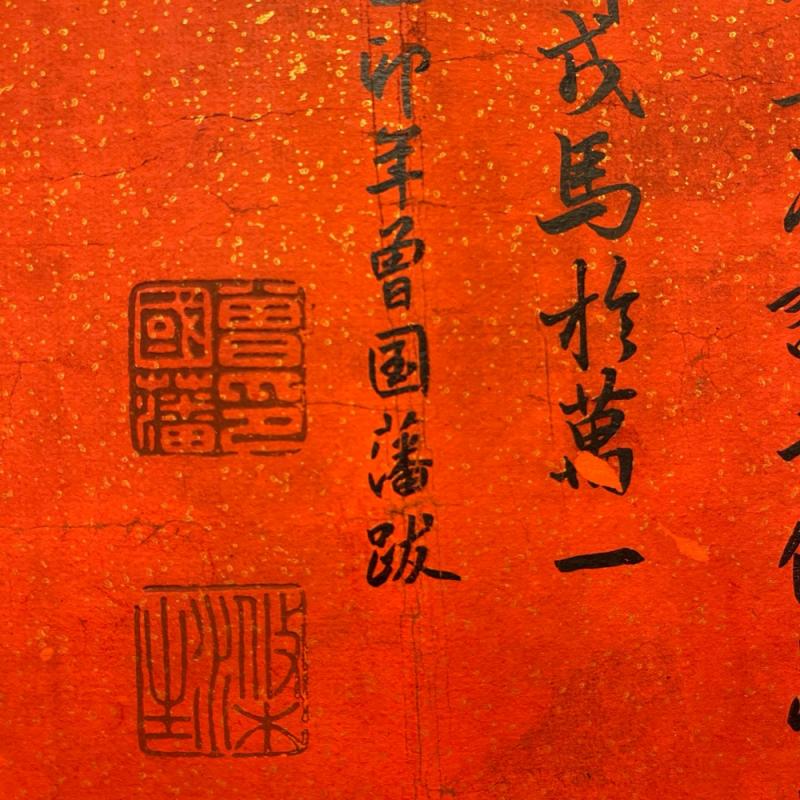 戎馬於萬一
卯年曾国藩跋
曾印
國藩
滌生